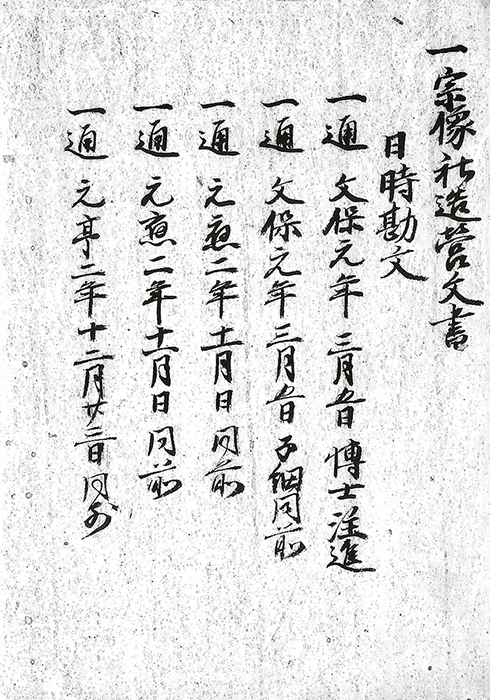 一宗像社造営文書
日時勘文
一通 文保元年三月五日博士注進
一通 文保元年三月五日子細同前
一通 元應二年十一月日同前
一通 元應二年十一月日同前
一通 元亨二年十二月廿三日同